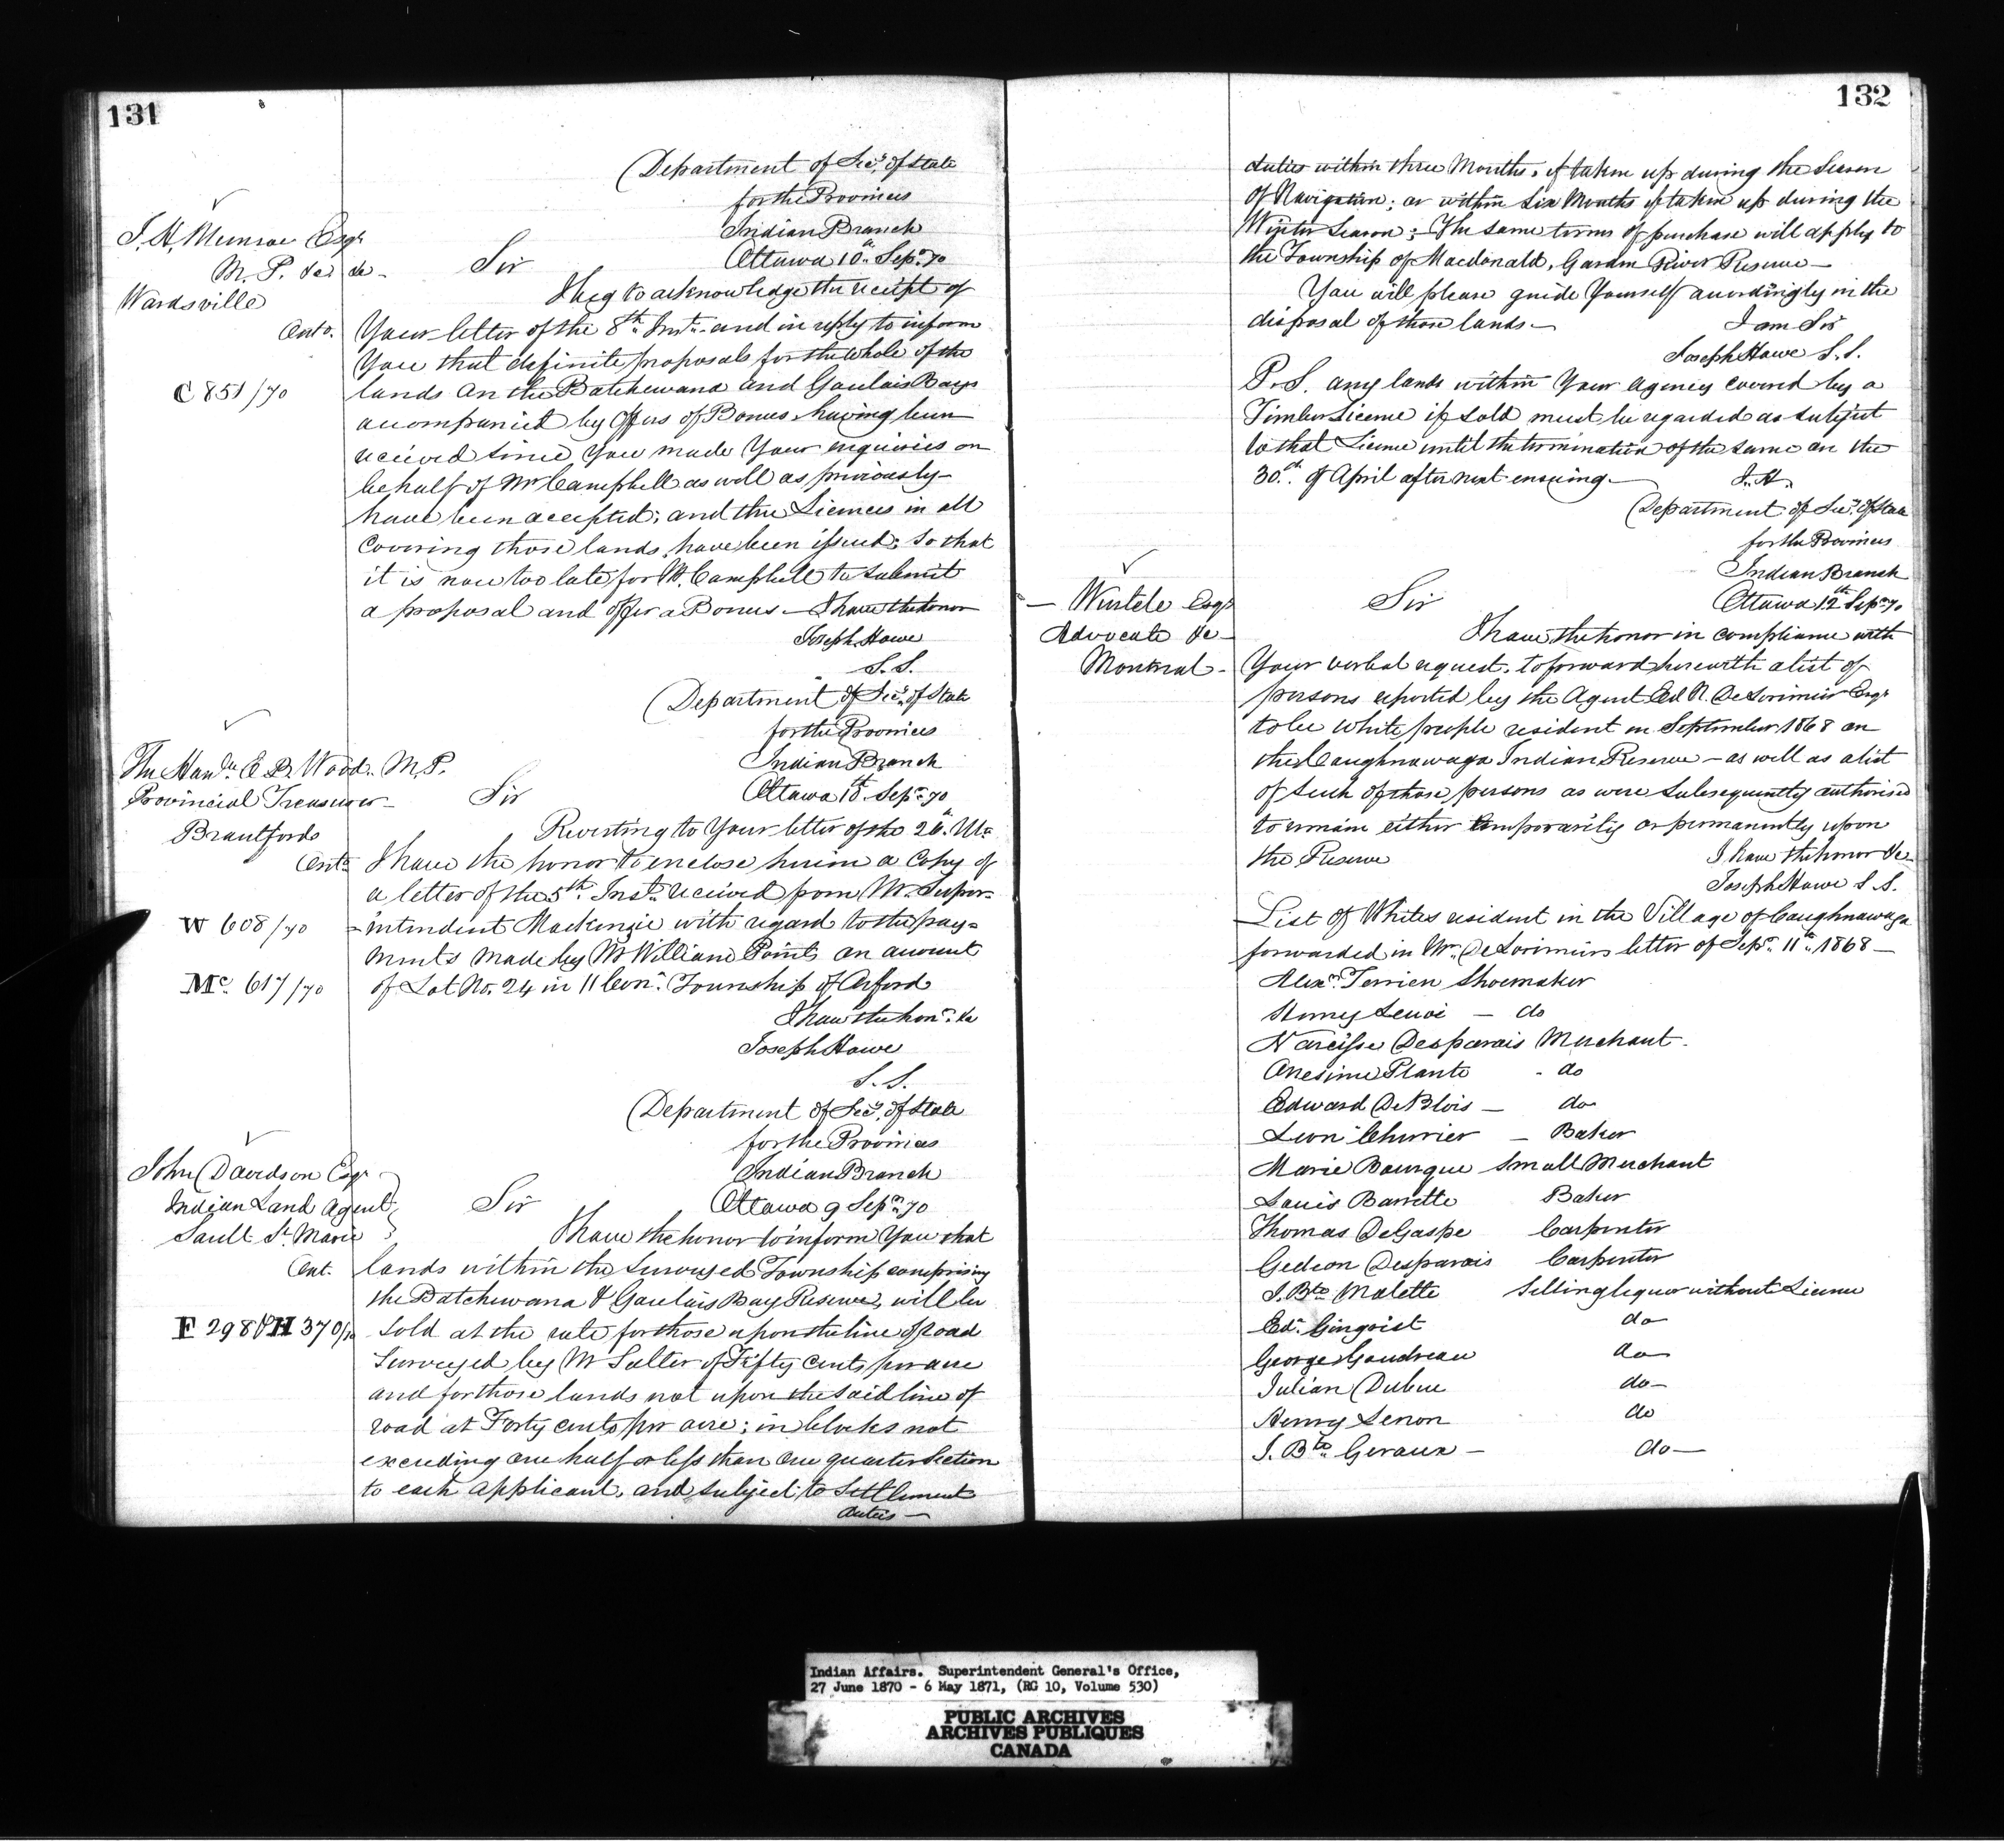 131
Department of Secy. of State
for the Provinces
Indian Branch
J. H. Munroe Esqr
M. P. &c &c -
Wardsville
Onto.
C 851/70
Ottawa 10th Sepr. 70
Sir
I beg to acknowledge the receipt of
Your letter of the 8th Inst. and in reply to inform
You that definite proposals for the whole of the
lands on the Batchewana and Goulais Bays
accompanied by Offers of Bonus, having been
received since You made Your inquiries on
behalf of Mr Campbell as well as previously -
have been accepted; and three Licences in all
Covering those lands, have been issued; so that
it is now too late for Mr. Campbell to submit
a proposal and offer a Bonus - I have the honor
Joseph Howe
S.S.
Department of Secy. of State
for the Provinces
Indian Branch
The Honble E. B. Wood. M.P.
Provincial Treasurer -
Brantford
Onto
W 608/70
Mc. 617/70
Ottawa 10th. Sepr. 70
Sir
Reverting to Your letter of the 26th. Ulto
I have the honor to enclose herein a Copy of
a letter of the 5th. Inst. received from Mr. Super-
=intendent Mackenzie with regard to the pay=
ments made by Mr William Points on account
of Lot No. 24 in 11 Con. Township of Orford
I have the honr. &c
Joseph Howe
S. S.
Department of Secy. of State
for the Provinces
Indian Branch
John Davidson Esqr
Indian Land Agent
Sault St. Marie
Ont.
F 298 & H 370/70
Ottawa 9 Sepr. 70
Sir
I have the honor to inform You that
lands within the Surveyed Township comprising
the Batchewana & Goulais Bay Reserve, will be
Sold at the rate for those upon the line of road
Surveyed by Mr Salter of Fifty cents per acre
and for those lands not upon the said line of
road at Forty cents per acre; in blocks not
exceeding one half or less than one quarter Section
to each applicant, and subject to Settlement
duties -
132
duties within three Months, if taken up during the Season
of Navigation; or within Six Months if taken up during the
Winter Season; The same terms of purchase will apply to
the Township of Macdonald, Garden River Reserve -
You will please guide Yourself accordingly in the
disposal of those lands -
I am Sir
Joseph Howe S.S.
P.S. any lands within Your agency covered by a
Timber Licence if sold must be regarded as subject
to that Licence until the termination of the same on the
30th. of April after next ensuing -
J. H.
Department of Secy. of State
for the Provinces
Indian Branch
- Wurtele Esqr
Advocate &c -
Montreal -
Ottawa 12th Sepr. 70
Sir
I have the honor in compliance with
Your verbal request, to forward herewith a list of
persons reported by the Agent Ed. N. DeLorimier Esqr
to be White people resident in September 1868 on
the Caughnawaga Indian Reserve - as well as a list
of such of those persons as were subsequently authorised
to remain either temporarily or permanently upon
the Reserve
I have the honor &c -
Joseph Howe S. S.
List of Whites resident in the Village of Caughnawaga
forwarded in Mr. DeLorimiers letter of Sepr. 11th. 1868 -
Alexr. Terrien Shoemaker
Henry - do
Narcisse Desparais Merchant -
Onesime Plante - do
Edward DeBlois - do
Leon Cherrier - Baker
Marie Bourque Small Merchant
Louis Barrette Baker
Thomas DeGaspe Carpenter
Gedeon Desparais Carpenter
J. Bte Malette Selling liquor without Licence
Ed. Gingrist do
George Goudreau do
Julian Dubuc do -
Henry Lenon do
J. Bte Geraux - do -
Indian Affairs. Superintendent General's Office,
27 June 1870 - 6 May 1871, (RG 10, Volume 530)
PUBLIC ARCHIVES
ARCHIVES PUBLIQUES
CANADA